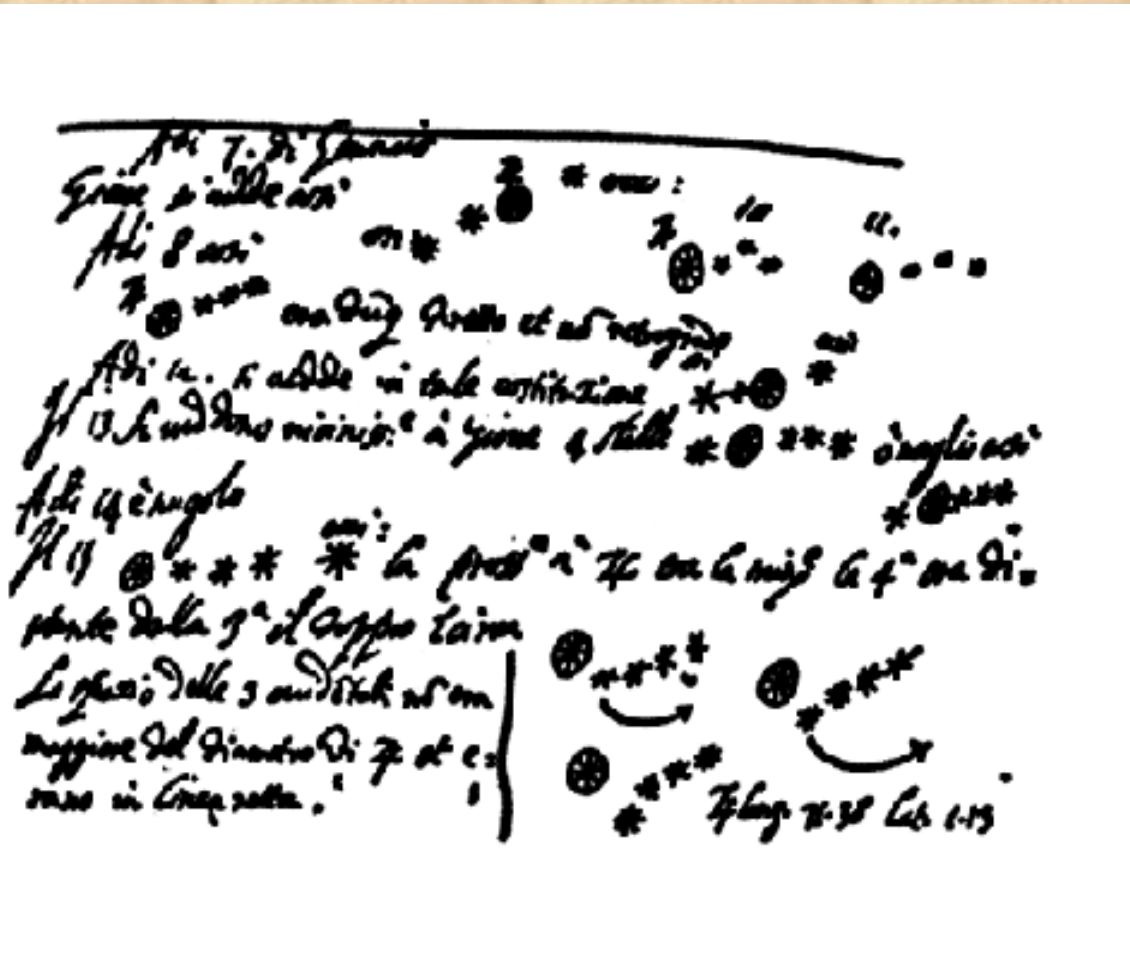 Adi 7. di Gennaio
Giove si vedde così
ori * * * occ:
Adi 8 così
10 11.
era dunque diretto et non retrogrado
Adi 12. si vedde in tale costituzione
occ
Il 13 si veddono vicinis.e a Giove 4 stelle
ò meglio così
Adi 14 è nugolo
occ:
Il 15 * * * * la pross.a a ♃ era la min.e la 4.a era di=
stante dalla 3.a il doppio
Lo spatio delle 3 non era
maggiore del diametro di ♃ et e=
rano in linea retta.
♃ long. 71.38 lat. 1.13